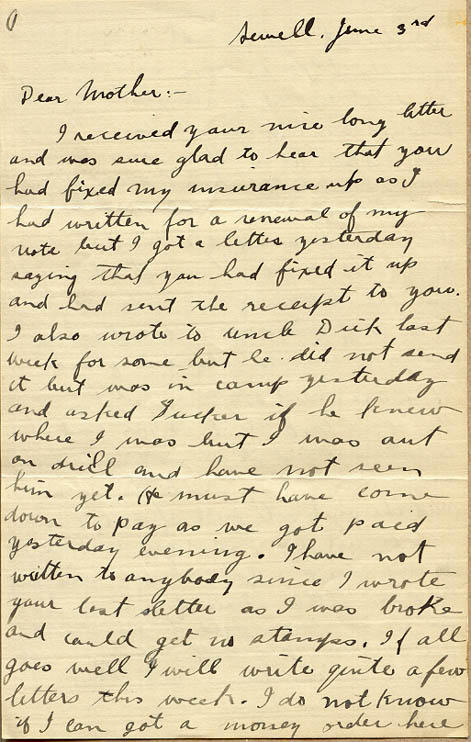 Sewell, June 3rd
Dear Mother:-
I received your nice long letter
and was sure glad to hear that you
had fixed my insurance up as I
had written for a renewal of my
note but I got a letter yesterday
saying that you had fixed it up
and had sent the receipt to you.
I also wrote to uncle Dick last
week for some but he did not send
it but was in camp yesterday
and asked Tucker if he knew
where I was but I was out
on drill and have not seen
him yet. He must have come
down to pay as we got paid
yesterday evening. I have not
written to anybody since I wrote
your last letter as I was broke
and could get no stamps. If all
goes well I will write quite a few
letters this week. I do not know
if I can got a money order here